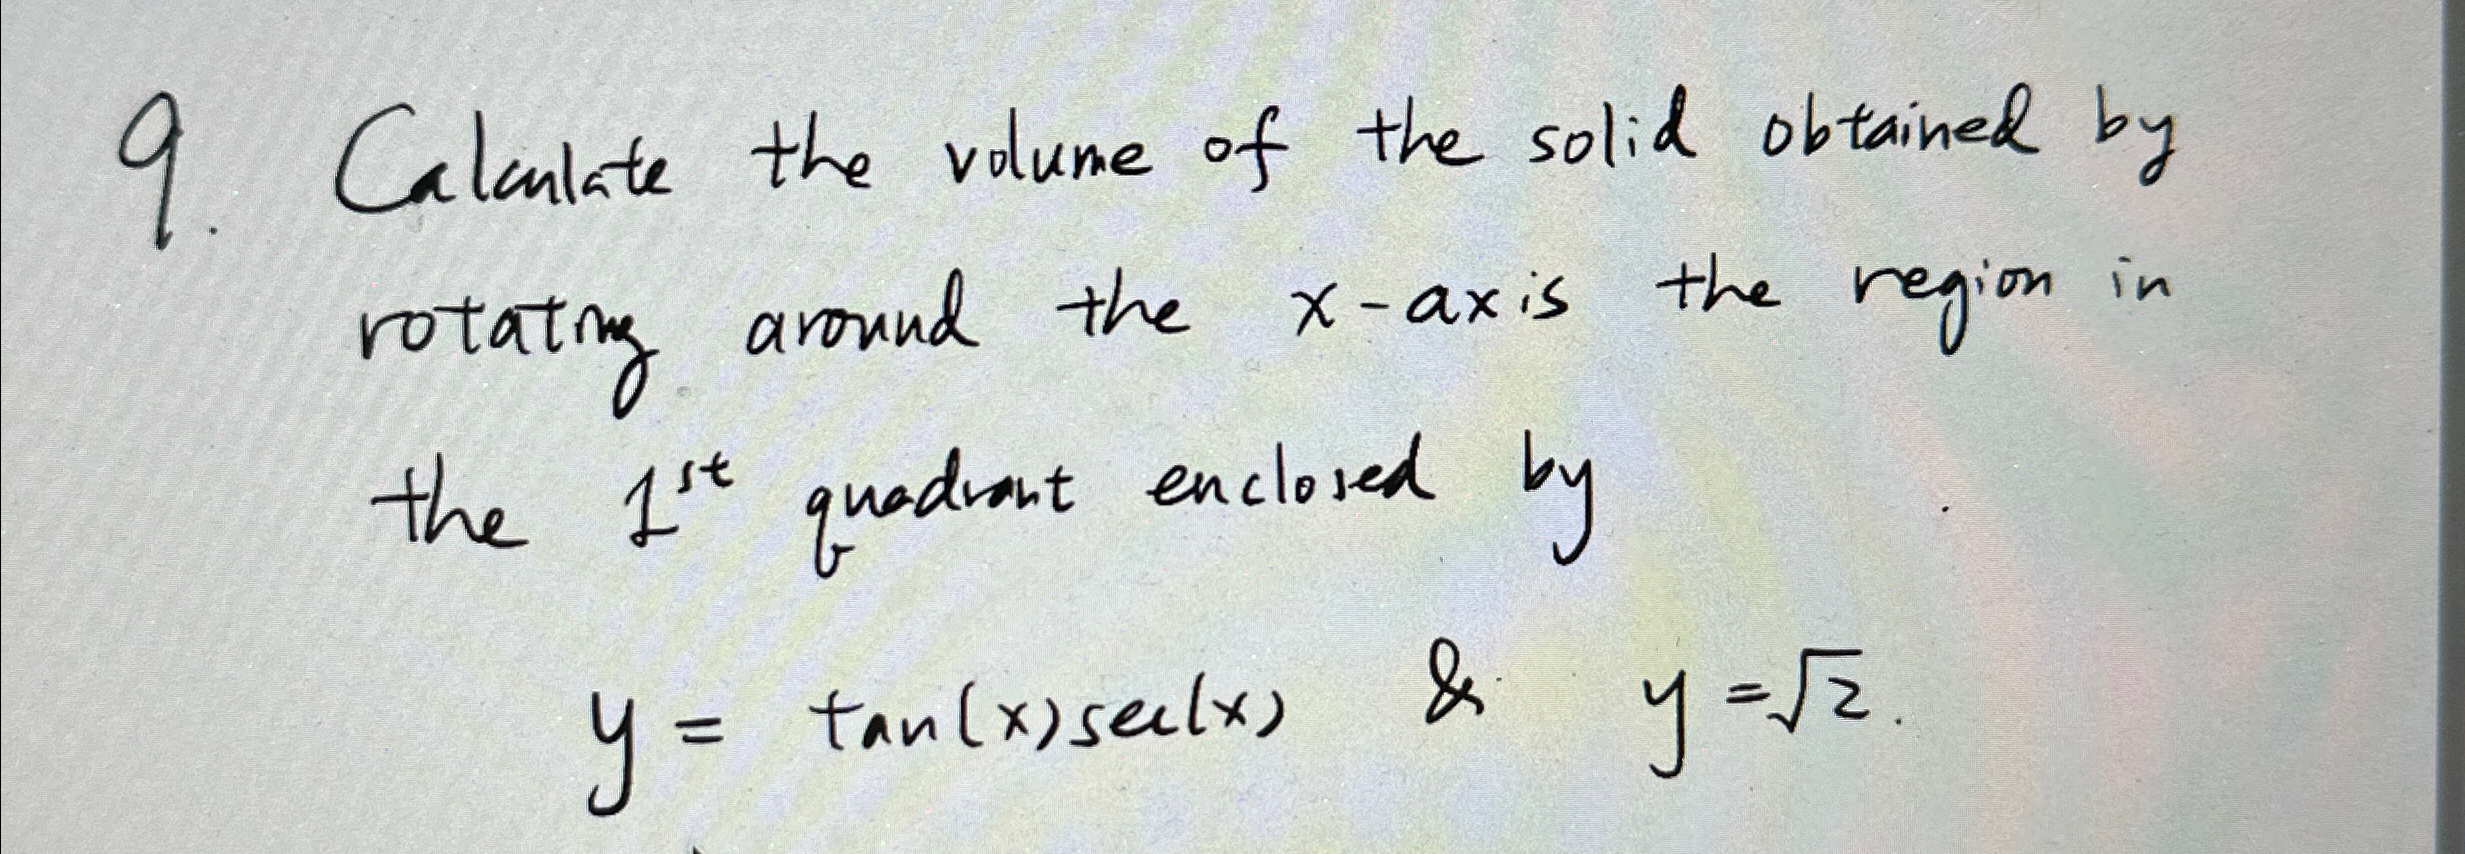 9. Calculate the volume of the solid obtained by
rotating around the x-axis the region in
the 1st quadrant enclosed by
y = tan(x)sec(x) & y = √2.